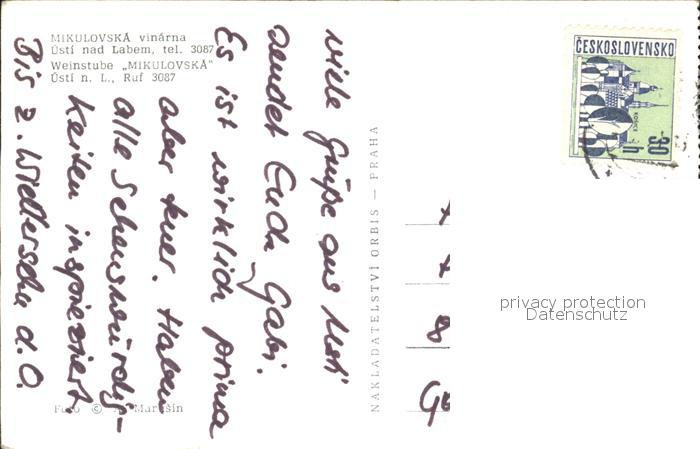 MIKULOVSKÁ vinárna
Ústí nad Labem, tel. 3087
Weinstube „MIKULOVSKÁ"
Ústí n. L., Ruf 3087
viele Grüße aus Usti
sendet Euch Gabi.
Es ist wirklich prima
aber teuer. Haben
alle Sehenswürdig-
keiten inspiziert.
Bis z. Wiedersehn d. O.
Foto © Marušín
NAKLADATELSTVÍ ORBIS — PRAHA
ČESKOSLOVENSKO
KOŠICE
30 h
privacy protection
Datenschutz